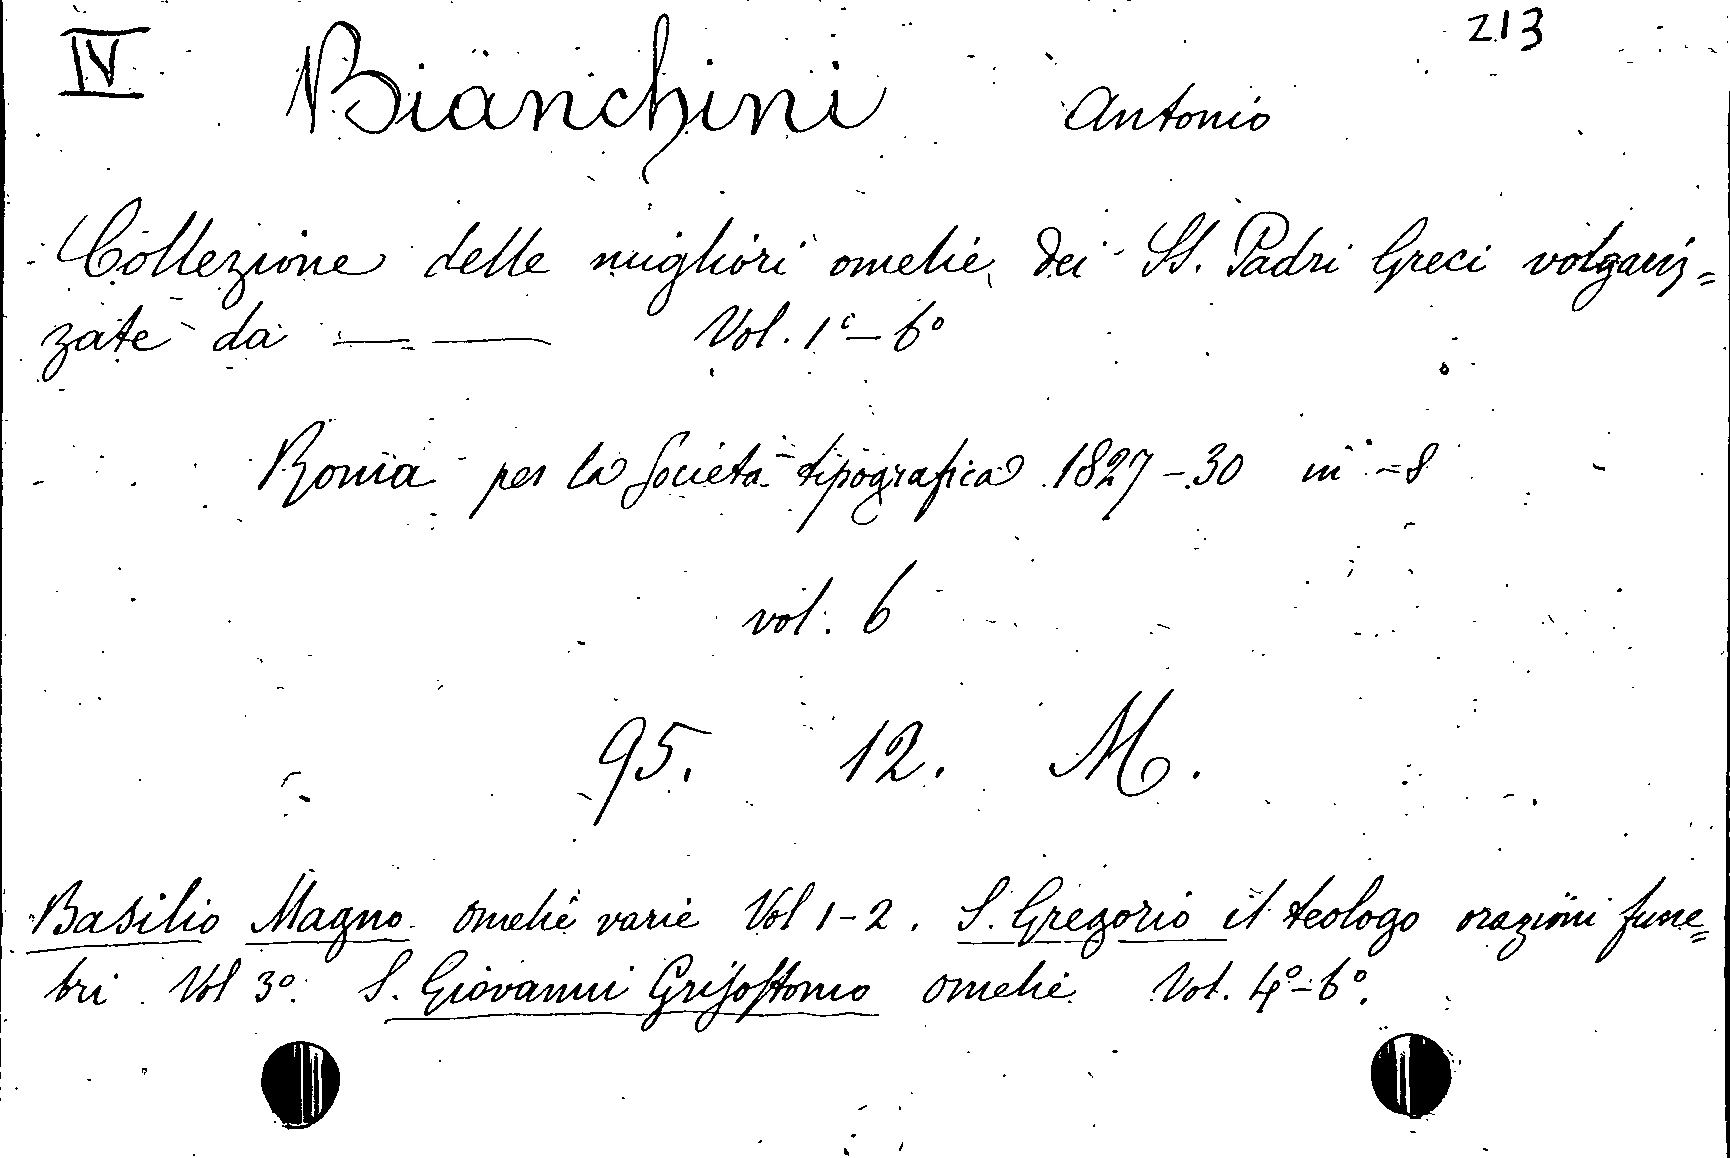 IV Bianchini Antonio 213
Collezione delle migliori omelie dei SS. Padri Greci volgariz=
zate da —— —— Vol. 1° – 6°
Roma per la Società tipografica 1827 – 30 in – 8
vol. 6
95. 12. M.
Basilio Magno omelie varie Vol 1 – 2. S. Gregorio il teologo orazioni fune=
bri Vol 3°. S. Giovanni Grisostomo omelie Vol. 4° – 6°.